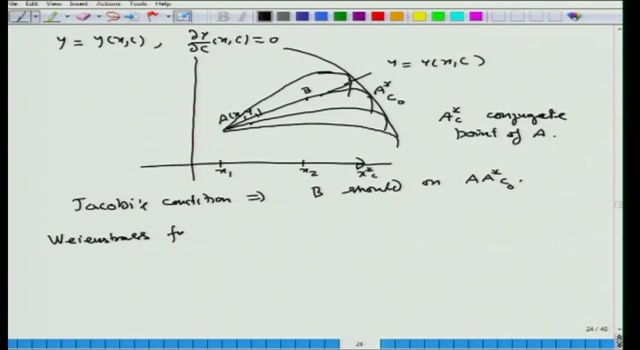 File Edit View Insert Actions Tools Help
y = y(x,c) , ∂y/∂c (x,c) = 0
y = y(x,c)
B
A*c₀
A(x₁,y₁)
A*c conjugate
point of A.
x₁ x₂ x*c
Jacobi's condition ⇒ B should on AA*c₀.
Weierstrass f
24 / 40
24